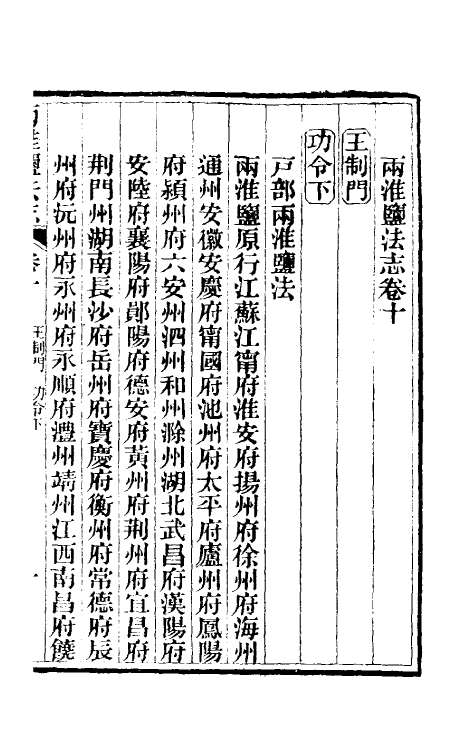 兩淮鹽法志卷十
王制門
功令下
戸部兩淮鹽法
兩淮鹽原行江蘇江甯府淮安府揚州府徐州府海州
通州安徽安慶府甯國府池州府太平府廬州府鳳陽
府潁州府六安州泗州和州滁州湖北武昌府漢陽府
安陸府襄陽府鄖陽府德安府黃州府荆州府宜昌府
荆門州湖南長沙府岳州府寶慶府衡州府常德府辰
州府沅州府永州府永順府澧州靖州江西南昌府饒
兩淮鹽法志 卷十 王制門 功令下 一